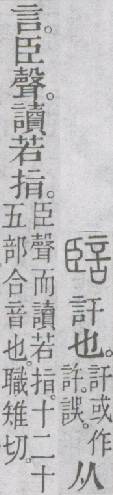 訐也。訐或作許。誤。从
言。臣聲。讀若指。臣聲而讀若指。十二十
五部合音也。職雉切。